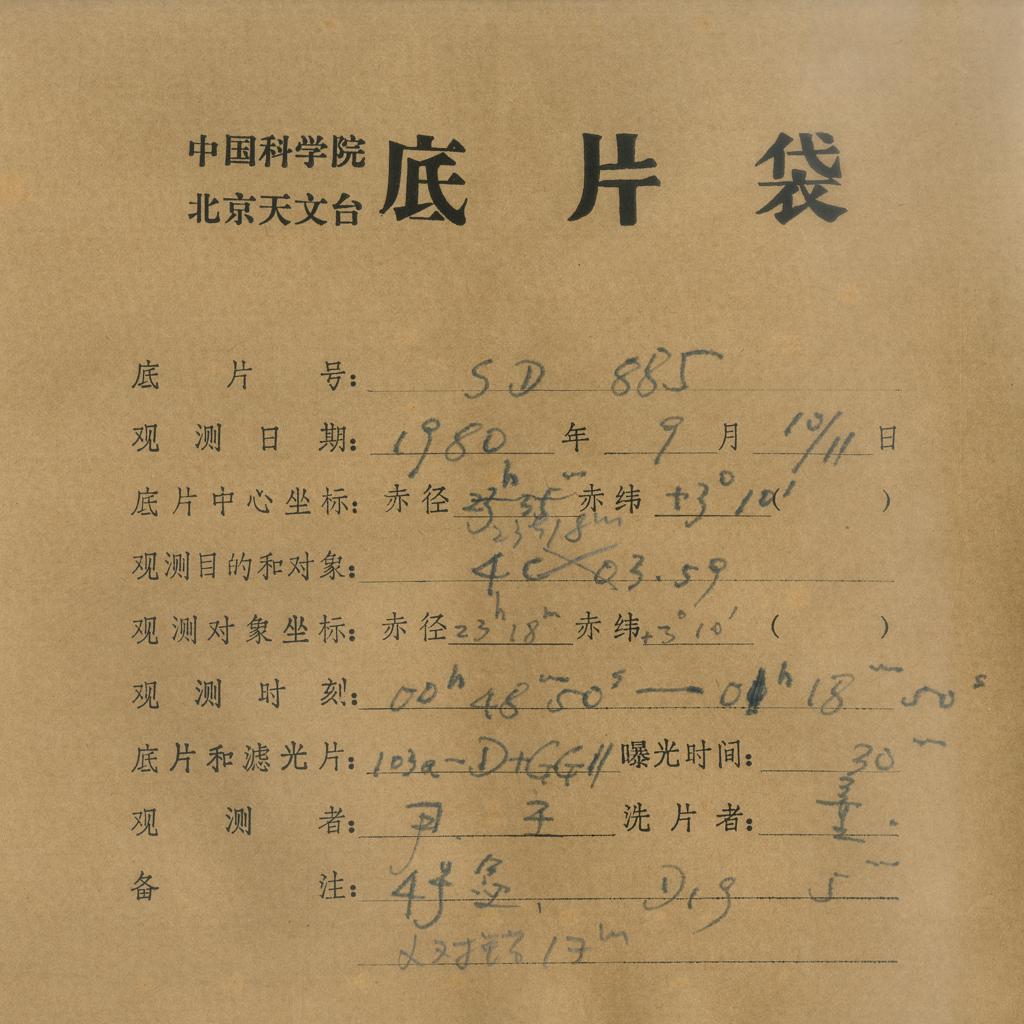 中国科学院
北京天文台 底片袋
底片号: SD 885
观测日期: 1980 年 9 月 10/11 日
底片中心坐标: 赤径 23h 35m 赤纬 +3° 10′ ( )
23h 18m
观测目的和对象: 4C 03.59
观测对象坐标: 赤径 23h 18m 赤纬 +3° 10′ ( )
观测时刻: 00h 48m 50s — 01h 18m 50s
底片和滤光片: 103a-D+GG11 曝光时间: 30m
观测者: 尹 王 洗片者:
备注: 4号盒, D19 5m
17m